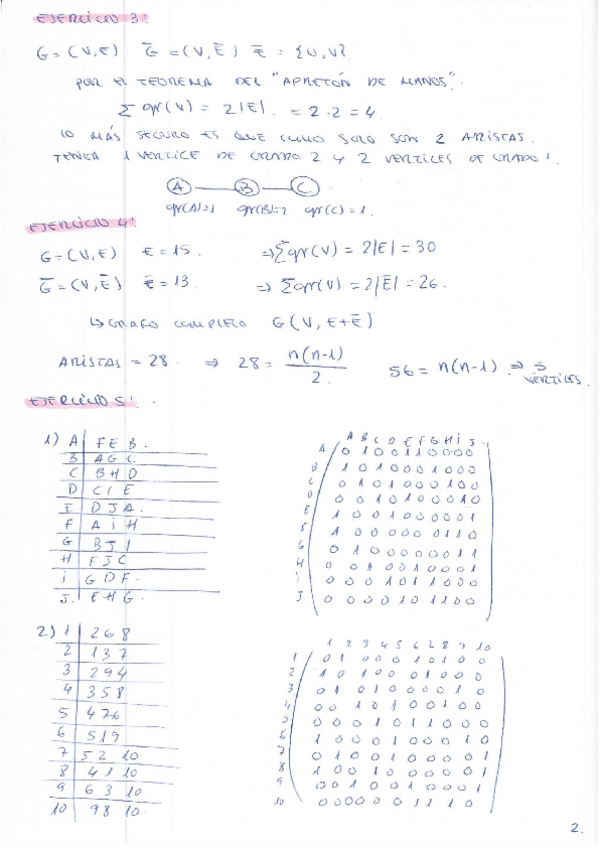 EJERCICIO 3:
G = (V, E)   Ḡ = (V, Ē)   Ē = {U, V}.
POR EL TEOREMA DEL "APRETÓN DE MANOS".
∑ gr(V) = 2|E|. = 2·2 = 4.
LO MÁS SEGURO ES QUE COMO SOLO SON 2 ARISTAS.
TENGA 1 VERTICE DE GRADO 2 Y 2 VERTICES DE GRADO 1.
A B C
gr(A)=1 gr(B)=2 gr(C)=1.
EJERCICIO 4:
G = (V, E)   E = 15.   ⇒ ∑gr(V) = 2|E| = 30
Ḡ = (V, Ē)   Ē = 13.   ⇒ ∑gr(V) = 2|Ē| = 26.
↳ GRAFO COMPLETO G(V, E+Ē)
ARISTAS = 28. ⇒ 28 = n(n-1) / 2.   56 = n(n-1) ⇒
VERTICES.
EJERCICIO 5:
1) A | F E B.
B | A G C.
C | B H D
D | C I E
E | D J A.
F | A i H
G | B J I
H | F J C
i | G D F.
J. | E H G.
A B C D E F G H i J.
A 0 1 0 0 1 1 0 0 0 0
B 1 0 1 0 0 0 1 0 0 0
C 0 1 0 1 0 0 0 1 0 0
D 0 0 1 0 1 0 0 0 1 0
E 1 0 0 1 0 0 0 0 0 1
F 1 0 0 0 0 0 0 1 1 0
G 0 1 0 0 0 0 0 0 1 1
H 0 0 1 0 0 1 0 0 0 1
i 0 0 0 1 0 1 1 0 0 0
J 0 0 0 0 1 0 1 1 0 0
2) 1 | 2 6 8
2 | 1 3 7
3 | 2 9 4
4 | 3 5 8
5 | 4 7 6
6 | 5 1 9
7 | 5 2 10
8 | 4 1 10
9 | 6 3 10
10 | 9 8 10
1 2 3 4 5 6 2 8 9 10
1 0 1 0 0 0 1 0 1 0 0
2 1 0 1 0 0 0 1 0 0 0
3 0 1 0 1 0 0 0 0 1 0
4 0 0 1 0 1 0 0 1 0 0
5 0 0 0 1 0 1 1 0 0 0
6 1 0 0 0 1 0 0 0 1 0
7 0 1 0 0 1 0 0 0 0 1
8 1 0 0 1 0 0 0 0 0 1
9 0 0 1 0 0 1 0 0 0 1
10 0 0 0 0 0 0 1 1 1 0
2.